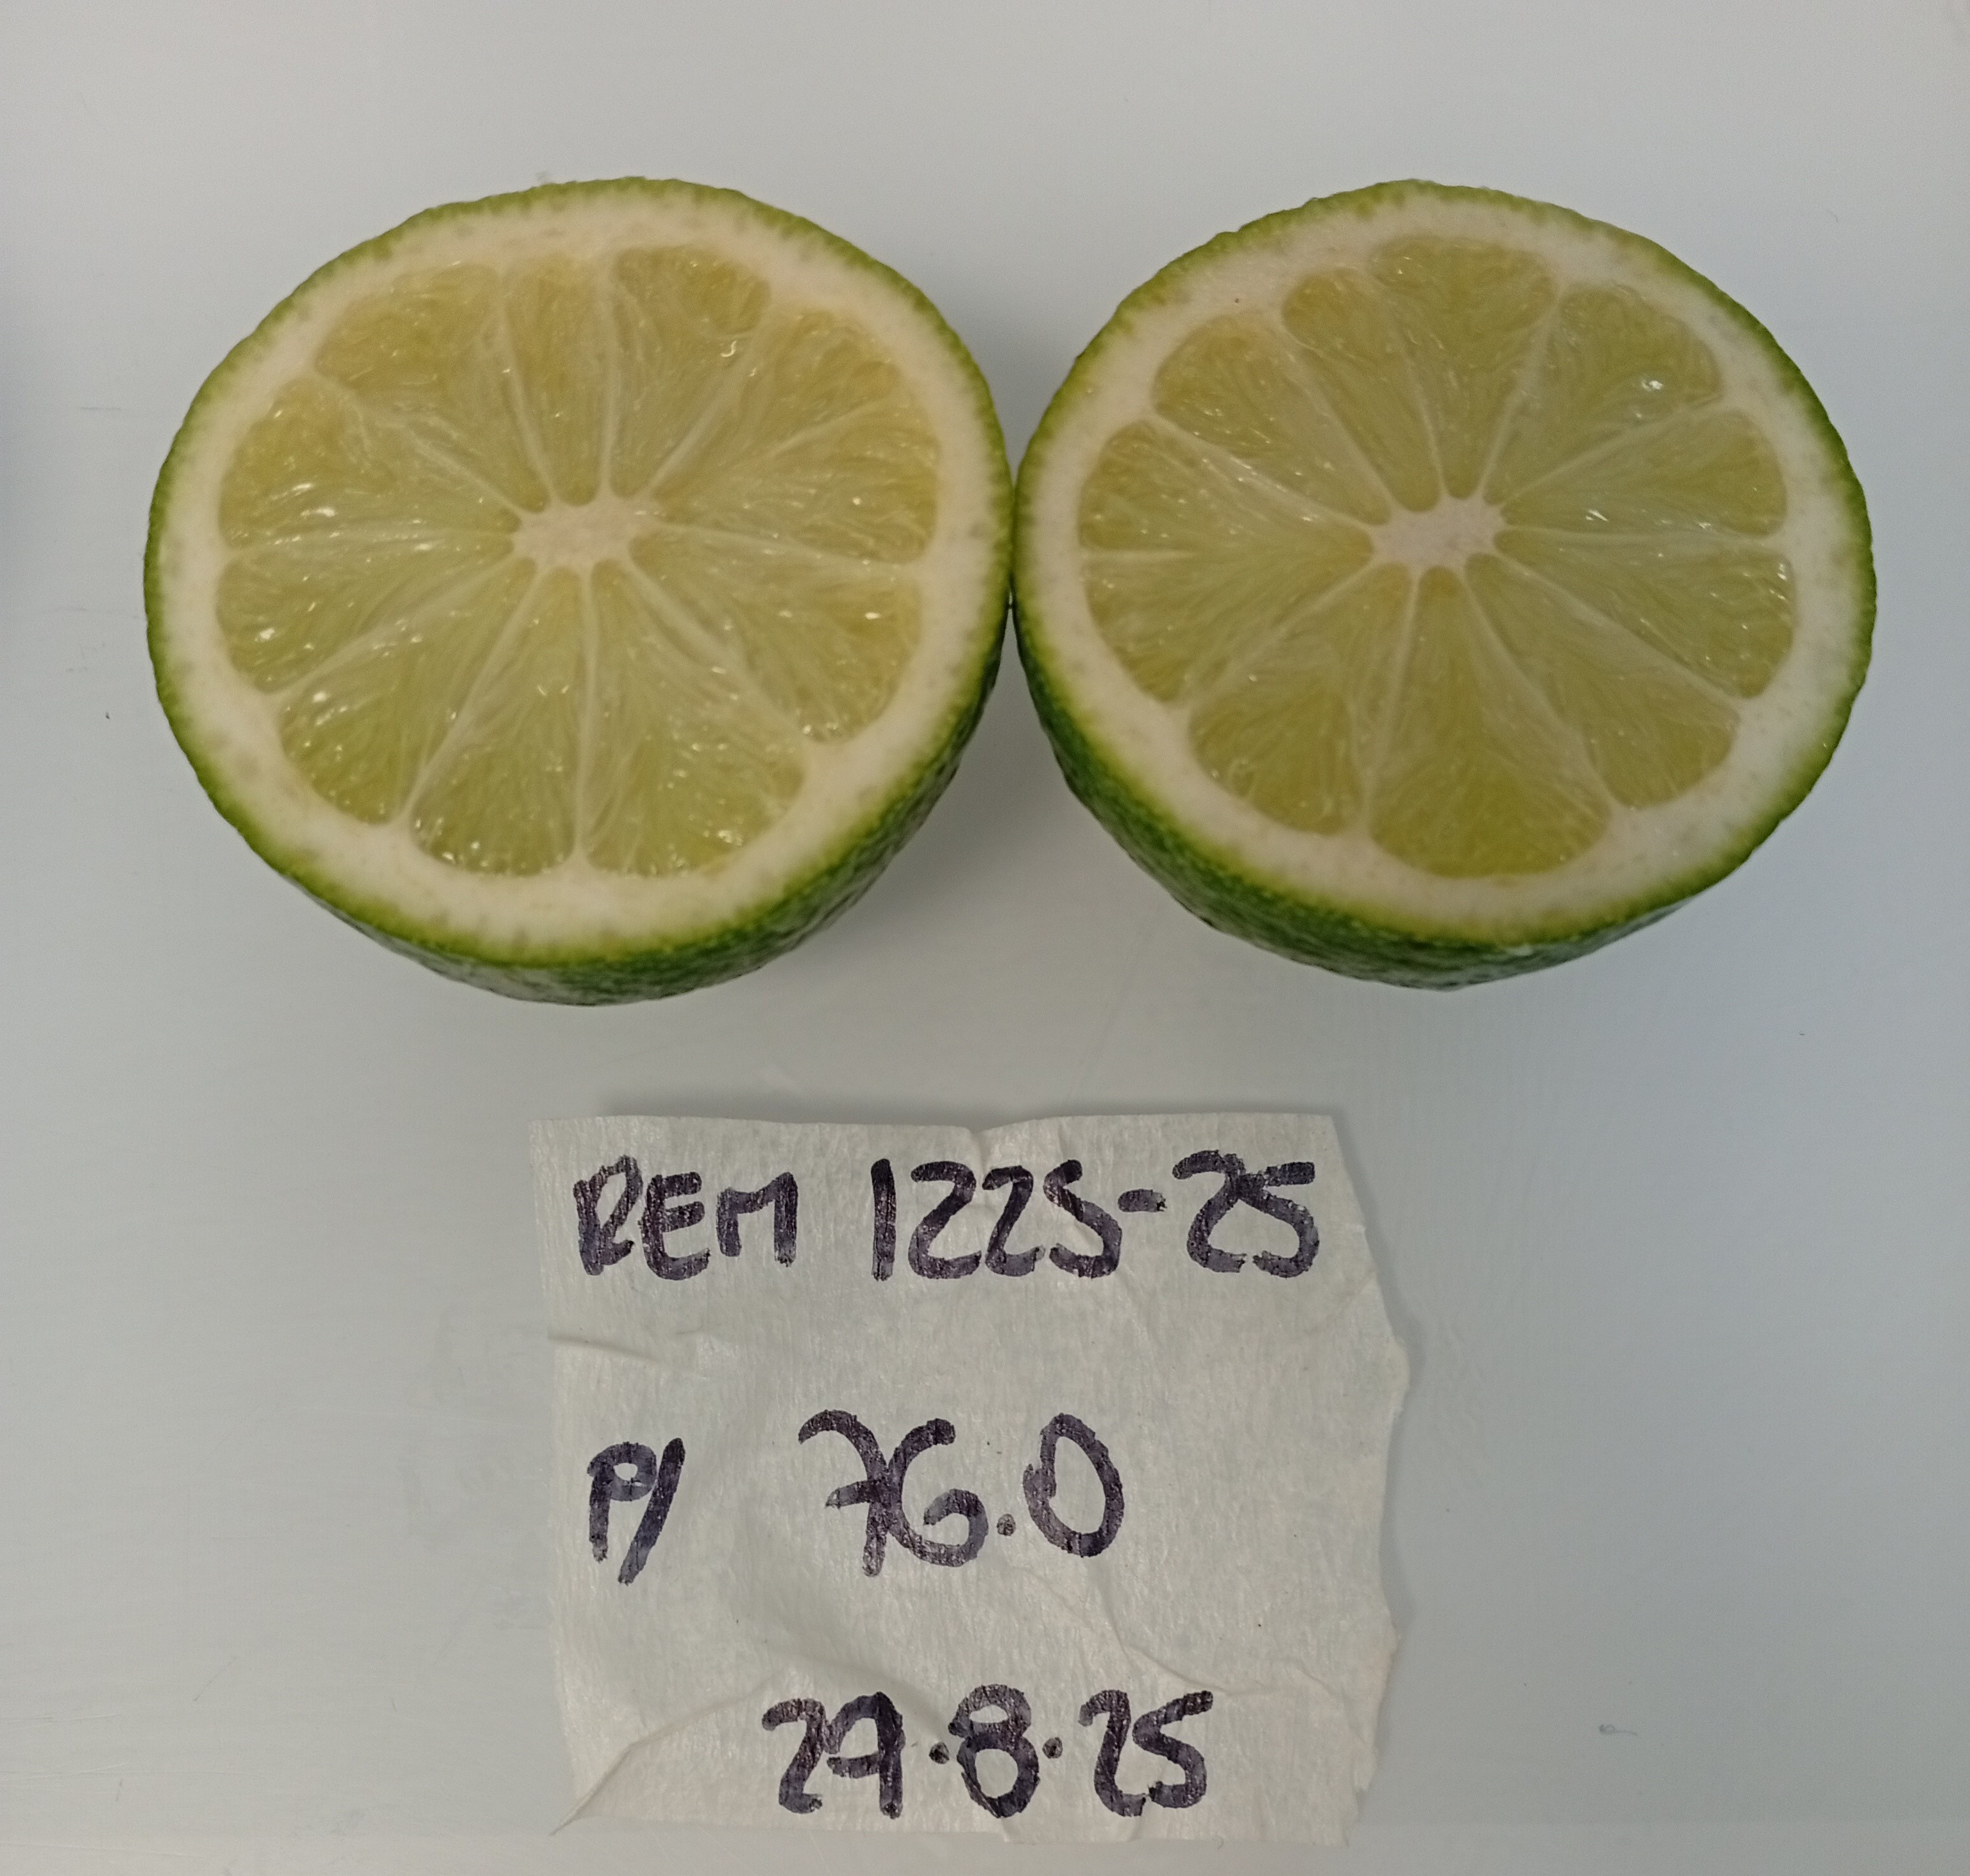 REM 1225-25
P/ 76.0
29.8.25